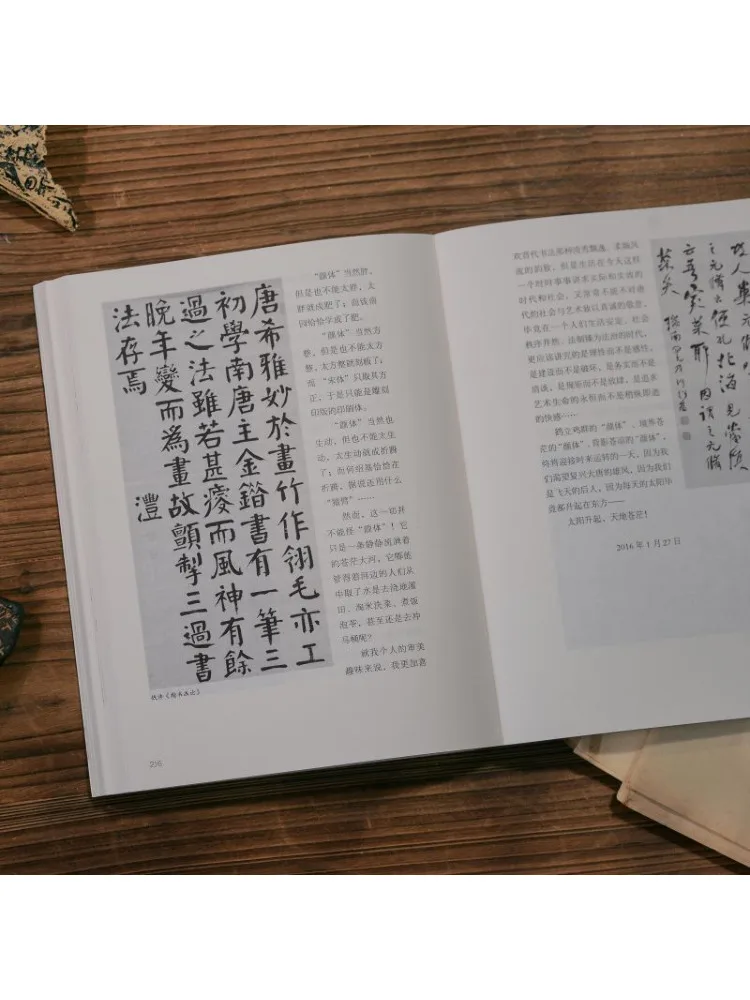 唐希雅妙於畫竹作翎毛亦工
初學南唐主金錯書有一筆三
過之法雖若甚瘦而風神有餘
晚年變而為畫故顫掣三過書
法存焉
澧
256
“颜体”当然胖,
但是也不能太胖,太
胖就成肥了;而钱南
园恰恰学成了肥。
“颜体”当然方
整,但是也不能太方
整,太方整就刻板了;
而“宋体”只取其方
正,于是只能是雕刻
印版的印刷体。
“颜体”当然也
生动,但也不能太生
动,太生动就成折腾
了;而何绍基恰恰在
折腾,据说还用什么
“猿臂”……
然而,这一切甚
不能怪“颜体”!它
只是一条静静流淌着
的苍茫大河,它哪能
管得着河边的人们从
中取了水是去浇地灌
田、淘米洗菜、煮饭
泡茶,甚至还是去冲
马桶呢?
就我个人的审美
趣味来说,我更加喜
欢晋代书法那种俊秀飘逸、柔媚风
流的韵致,但是生活在今天这样
一个时时事事讲求实际和实效的
时代和社会,又常常不能不对唐
代的社会与艺术给以真诚的敬意。
毕竟在一个人们生活安定、社会
秩序井然、法制臻为法治的时代,
更应该讲究的是理性而不是感性,
是建设而不是破坏,是务实而不是
清谈,是规矩而不是放肆,是追求
艺术生命的永恒而不是稍纵即逝
的快感……
鹤立鸡群的“颜体”、城界苍
茫的“颜体”、背影苍凉的“颜体”,
终将迎接时来运转的一天,因为我
们渴望复兴大唐的雄风,因为我们
是飞天的后人,因为每天的太阳毕
竟都升起在东方——
太阳升起,天地苍茫!
2016年1月27日